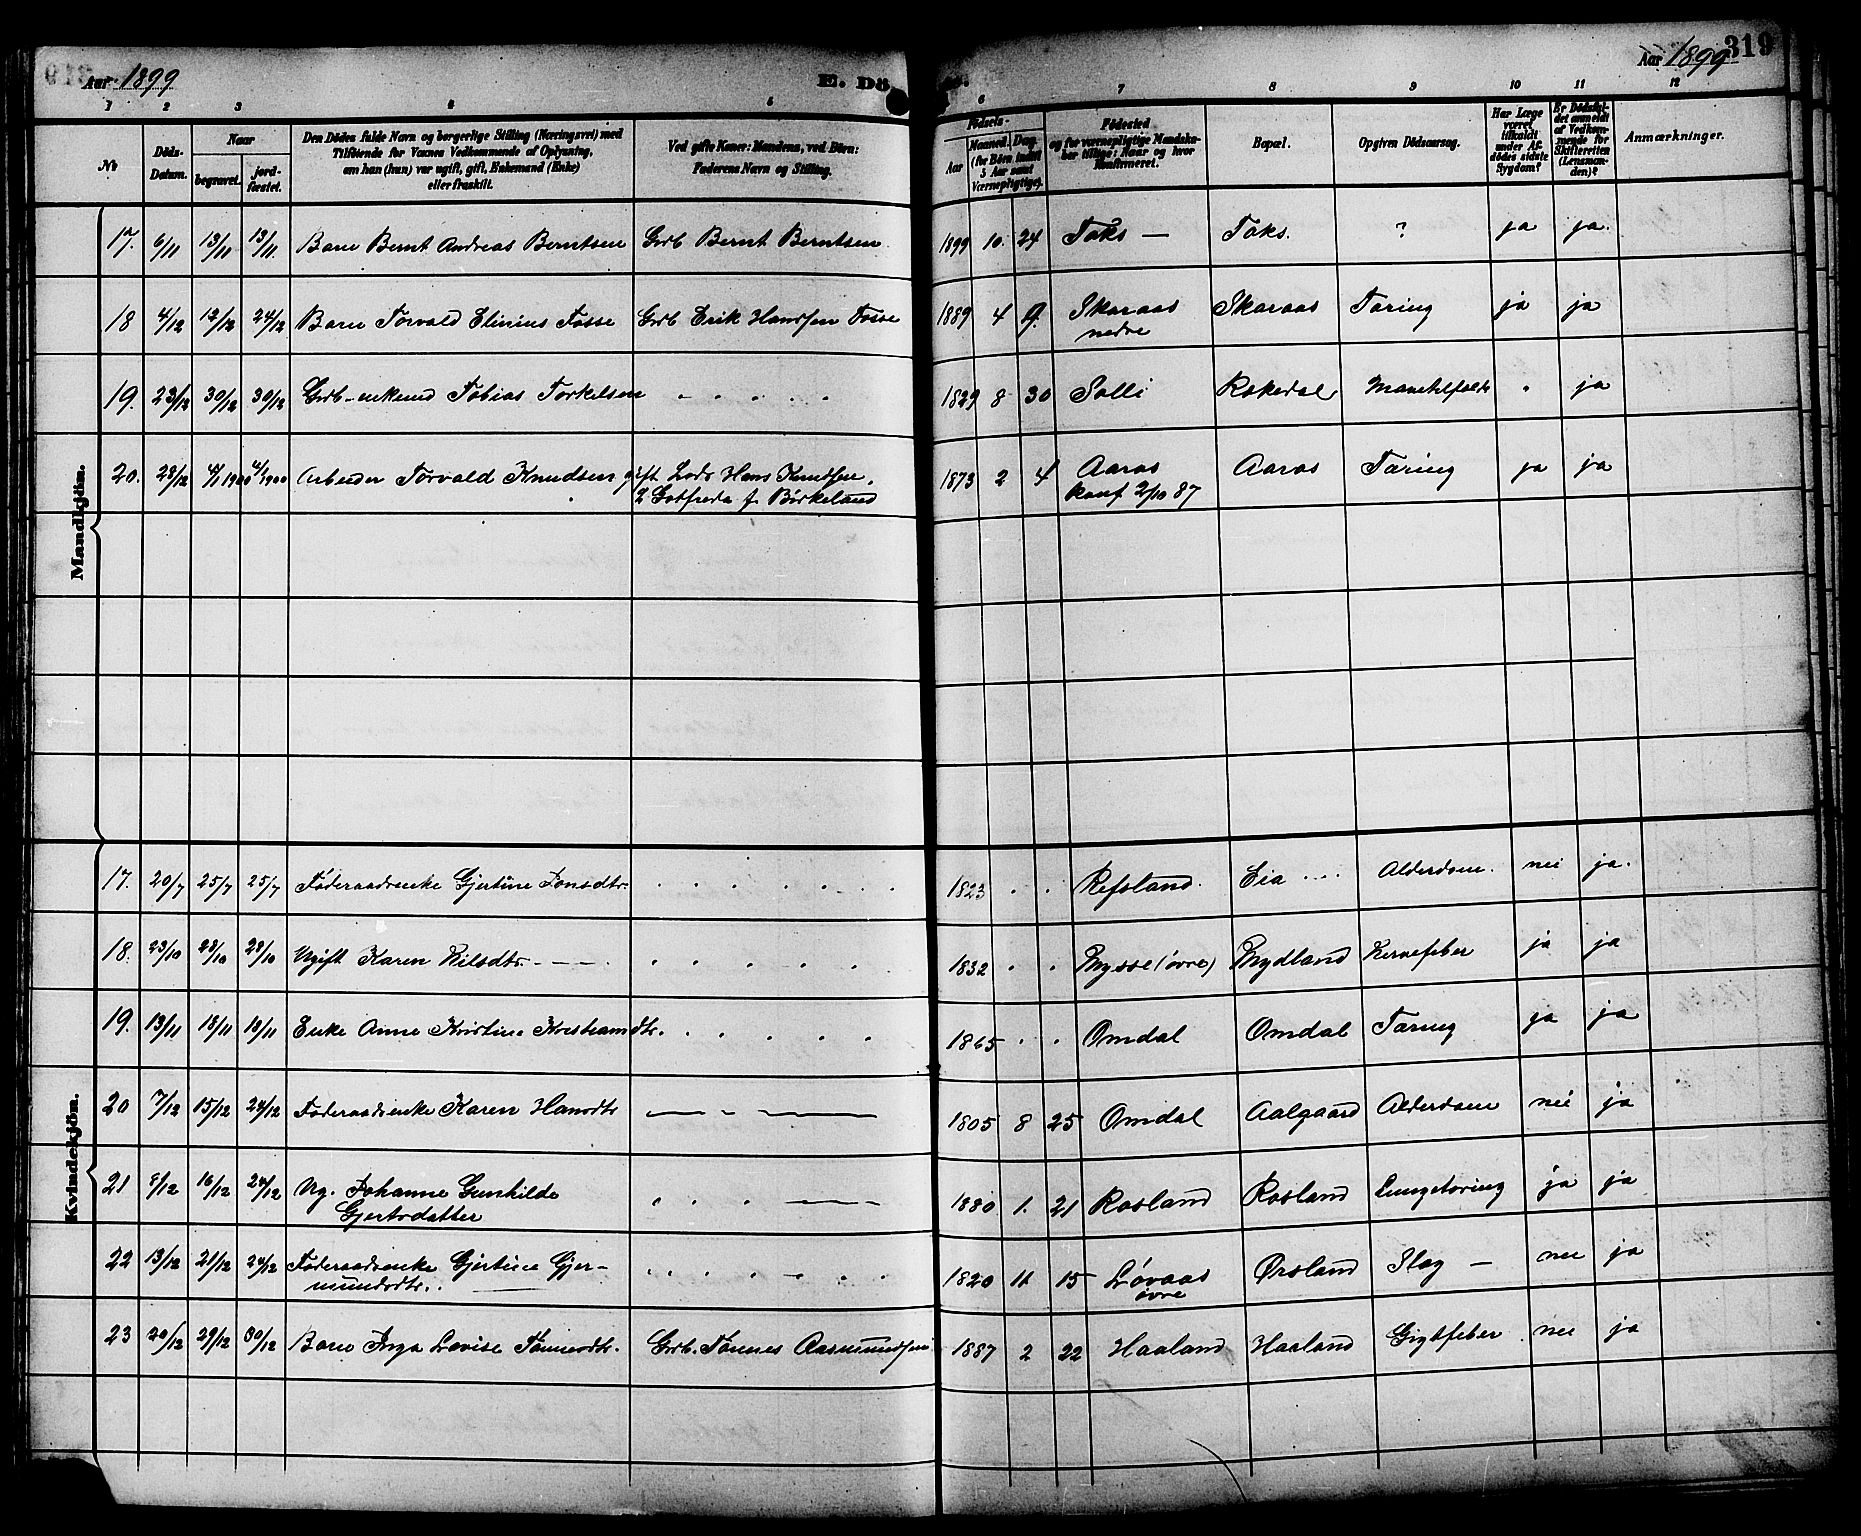 Aar 1899
E. Dö
Aar 1899
319
1 2 3 4 5 6 7 8 9 10 11 12
No
Döds-Datum.
Naar
begravet.
jord-fæstet.
Den Dödes fulde Navn og borgerlige Stilling (Næringsvei) med
Tilföiende for Voxnes Vedkommende af Oplysning,
om han (hun) var ugift, gift, Enkemand (Enke)
eller fraskilt.
Ved gifte Koner: Mandens, ved Börn:
Faderens Navn og Stilling.
Födsels-
Aar
Maaned. Dag.
(for Börn indtil
5 Aar samt
Værnepligtige).
Födested
og for værnepligtige Mandska-
ber tillige: Naar og hvor
konfirmeret.
Bopæl.
Opgiven Dödsaarsag.
Har Læge
været
tilkaldt
under Af-
dödes sidste
Sygdom?
Er Dödsfal-
det anmeldt
af Vedkom-
mende for
Skifteretten
(Lensman-
den)?
Anmærkninger.
Mandkjön.
17. 6/11 13/11 13/11. Barn Bernt Andreas Berntsen Grdb Bernt Berntsen 1899 10. 24 Toks — Toks. ? ja ja.
18 4/12 12/12 24/12 Barn Torvald Elinius Fosse Grdb Erik Hansen Fosse 1889 4 9. Skaraas Skaraas Tæring ja ja
nedre
19. 23/12 30/12 30/12 Grdb-enkemd Tobias Torkelsen 1829 8 30 Solli Rekedal " ja
20. 28/12 4/1 1900 4/1 1900 Arbeider Torvald Knudsen gift Lods Hans Knudsen. 1873 2 4 Aaros Aaros Tæring ja ja
Gotfreda f. Birkeland konf 2/10 87
Kvindekjön.
17. 20/7 25/7 25/7 Föderaadsenke Gjertine Jonsdtr. 1823 . . Refsland. Eia .... Alderdom. nei ja.
18. 23/10 28/10 28/10 Ugift Karen Nilsdtr. 1832 . . Mysse (övre) Mydland Nervefeber ja ja
19. 13/11 18/11 18/11 Enke Anne Kristine Kristiansdtr. 1865 . . Omdal Omdal Tæring ja ja
20 7/12 15/12 24/12 Föderaadsenke Karen Hansdtr 1805 8 25 Omdal Aalgaard Alderdom nei ja
21 8/12 16/12 24/12 Ug. Johanne Gunhilde 1880 1. 21 Rosland Rosland Lungetæring ja ja
Gjertsdatter
22 13/12 21/12 24/12 Föderaadsenke Gjertine Gjer- 1820 11 15 Lövaas Örsland Slag — nei ja
mundsdtr. övre
23 20/12 29/12 30/12 Barn Inga Lovise Tönnesdtr. Grdb. Tönnes Aasmundsen 1887 2 22 Haaland Haaland Gigtfeber nei ja